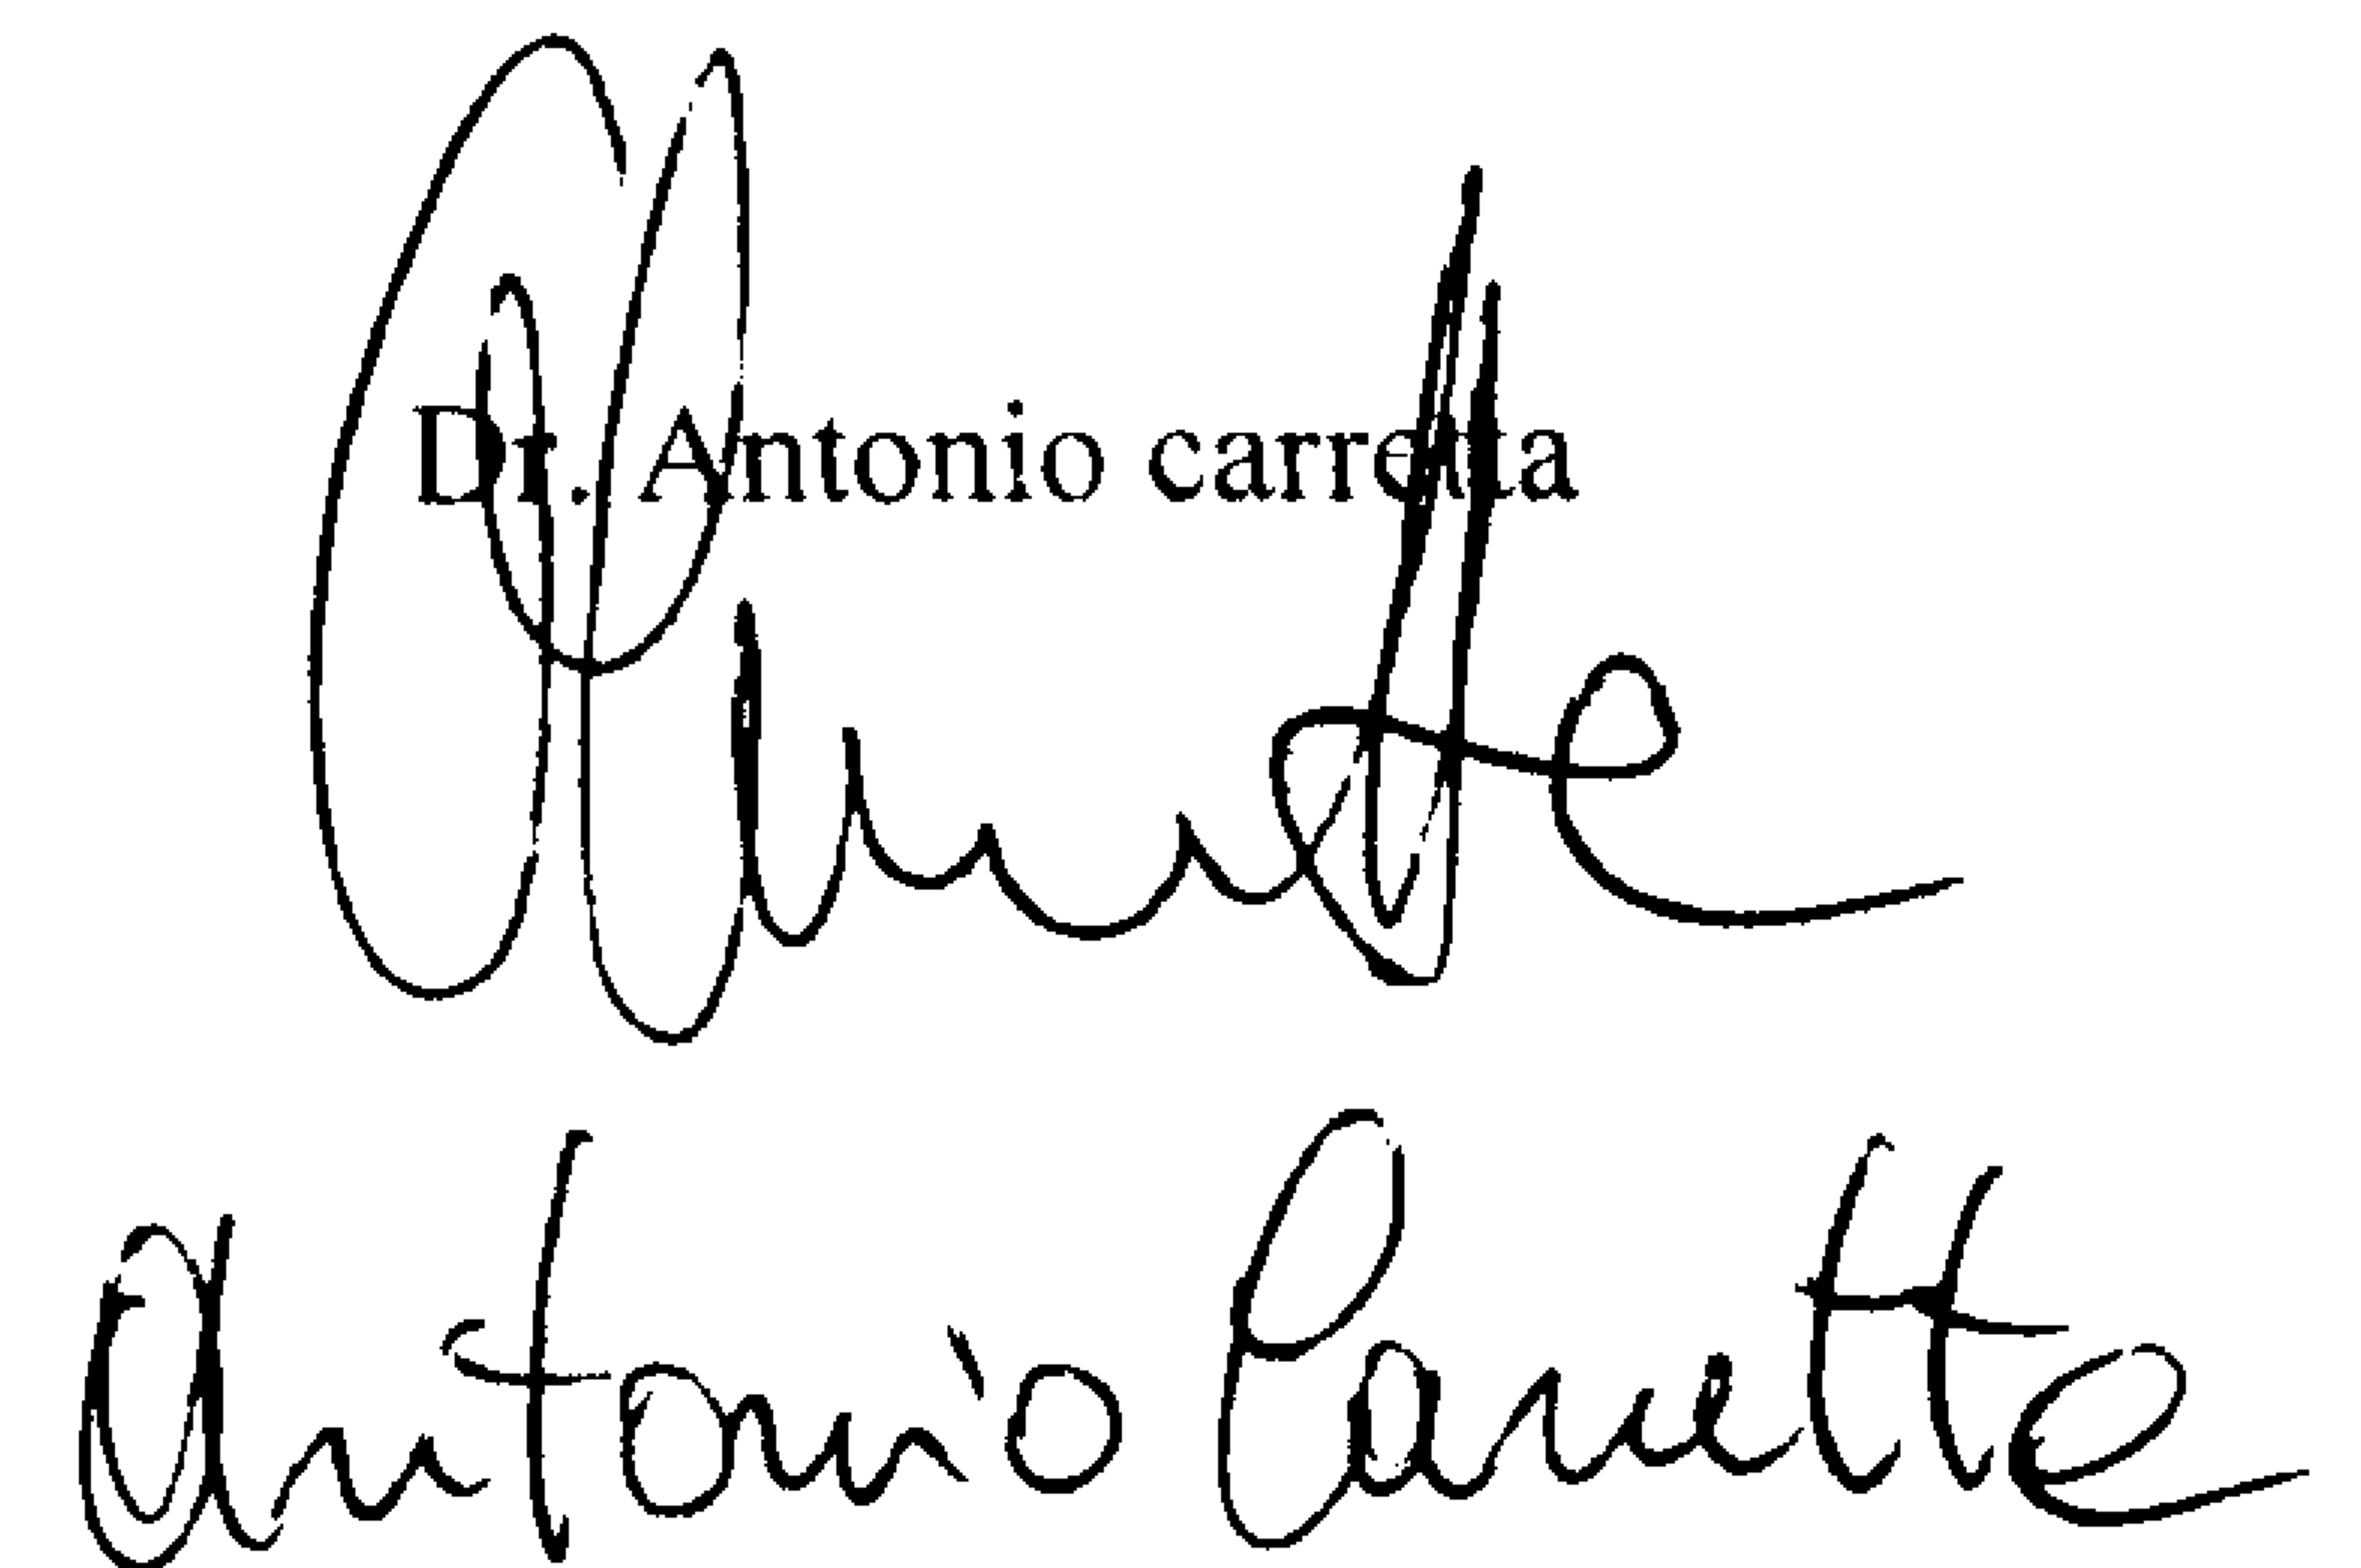 Dr. Antonio carretta
Antonio Carrette